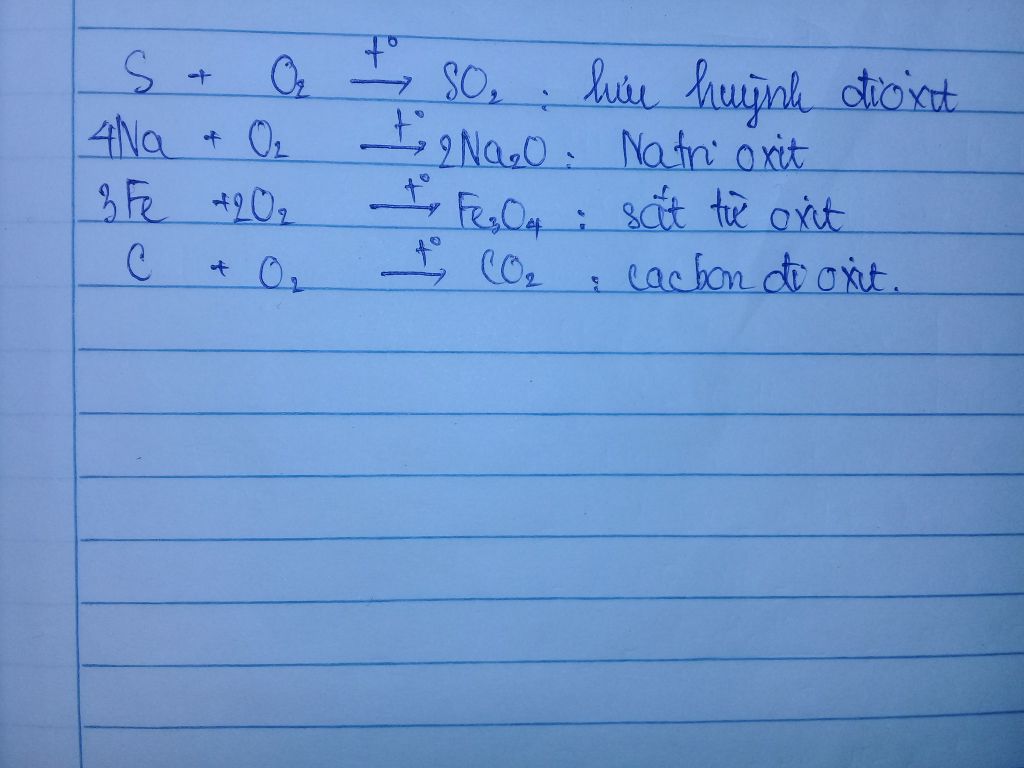 S + O₂ —t°→ SO₂ : lưu huỳnh đioxit
4Na + O₂ —t°→ 2Na₂O : Natri oxit
3Fe + 2O₂ —t°→ Fe₃O₄ : sắt từ oxit
C + O₂ —t°→ CO₂ : cacbon đi oxit.